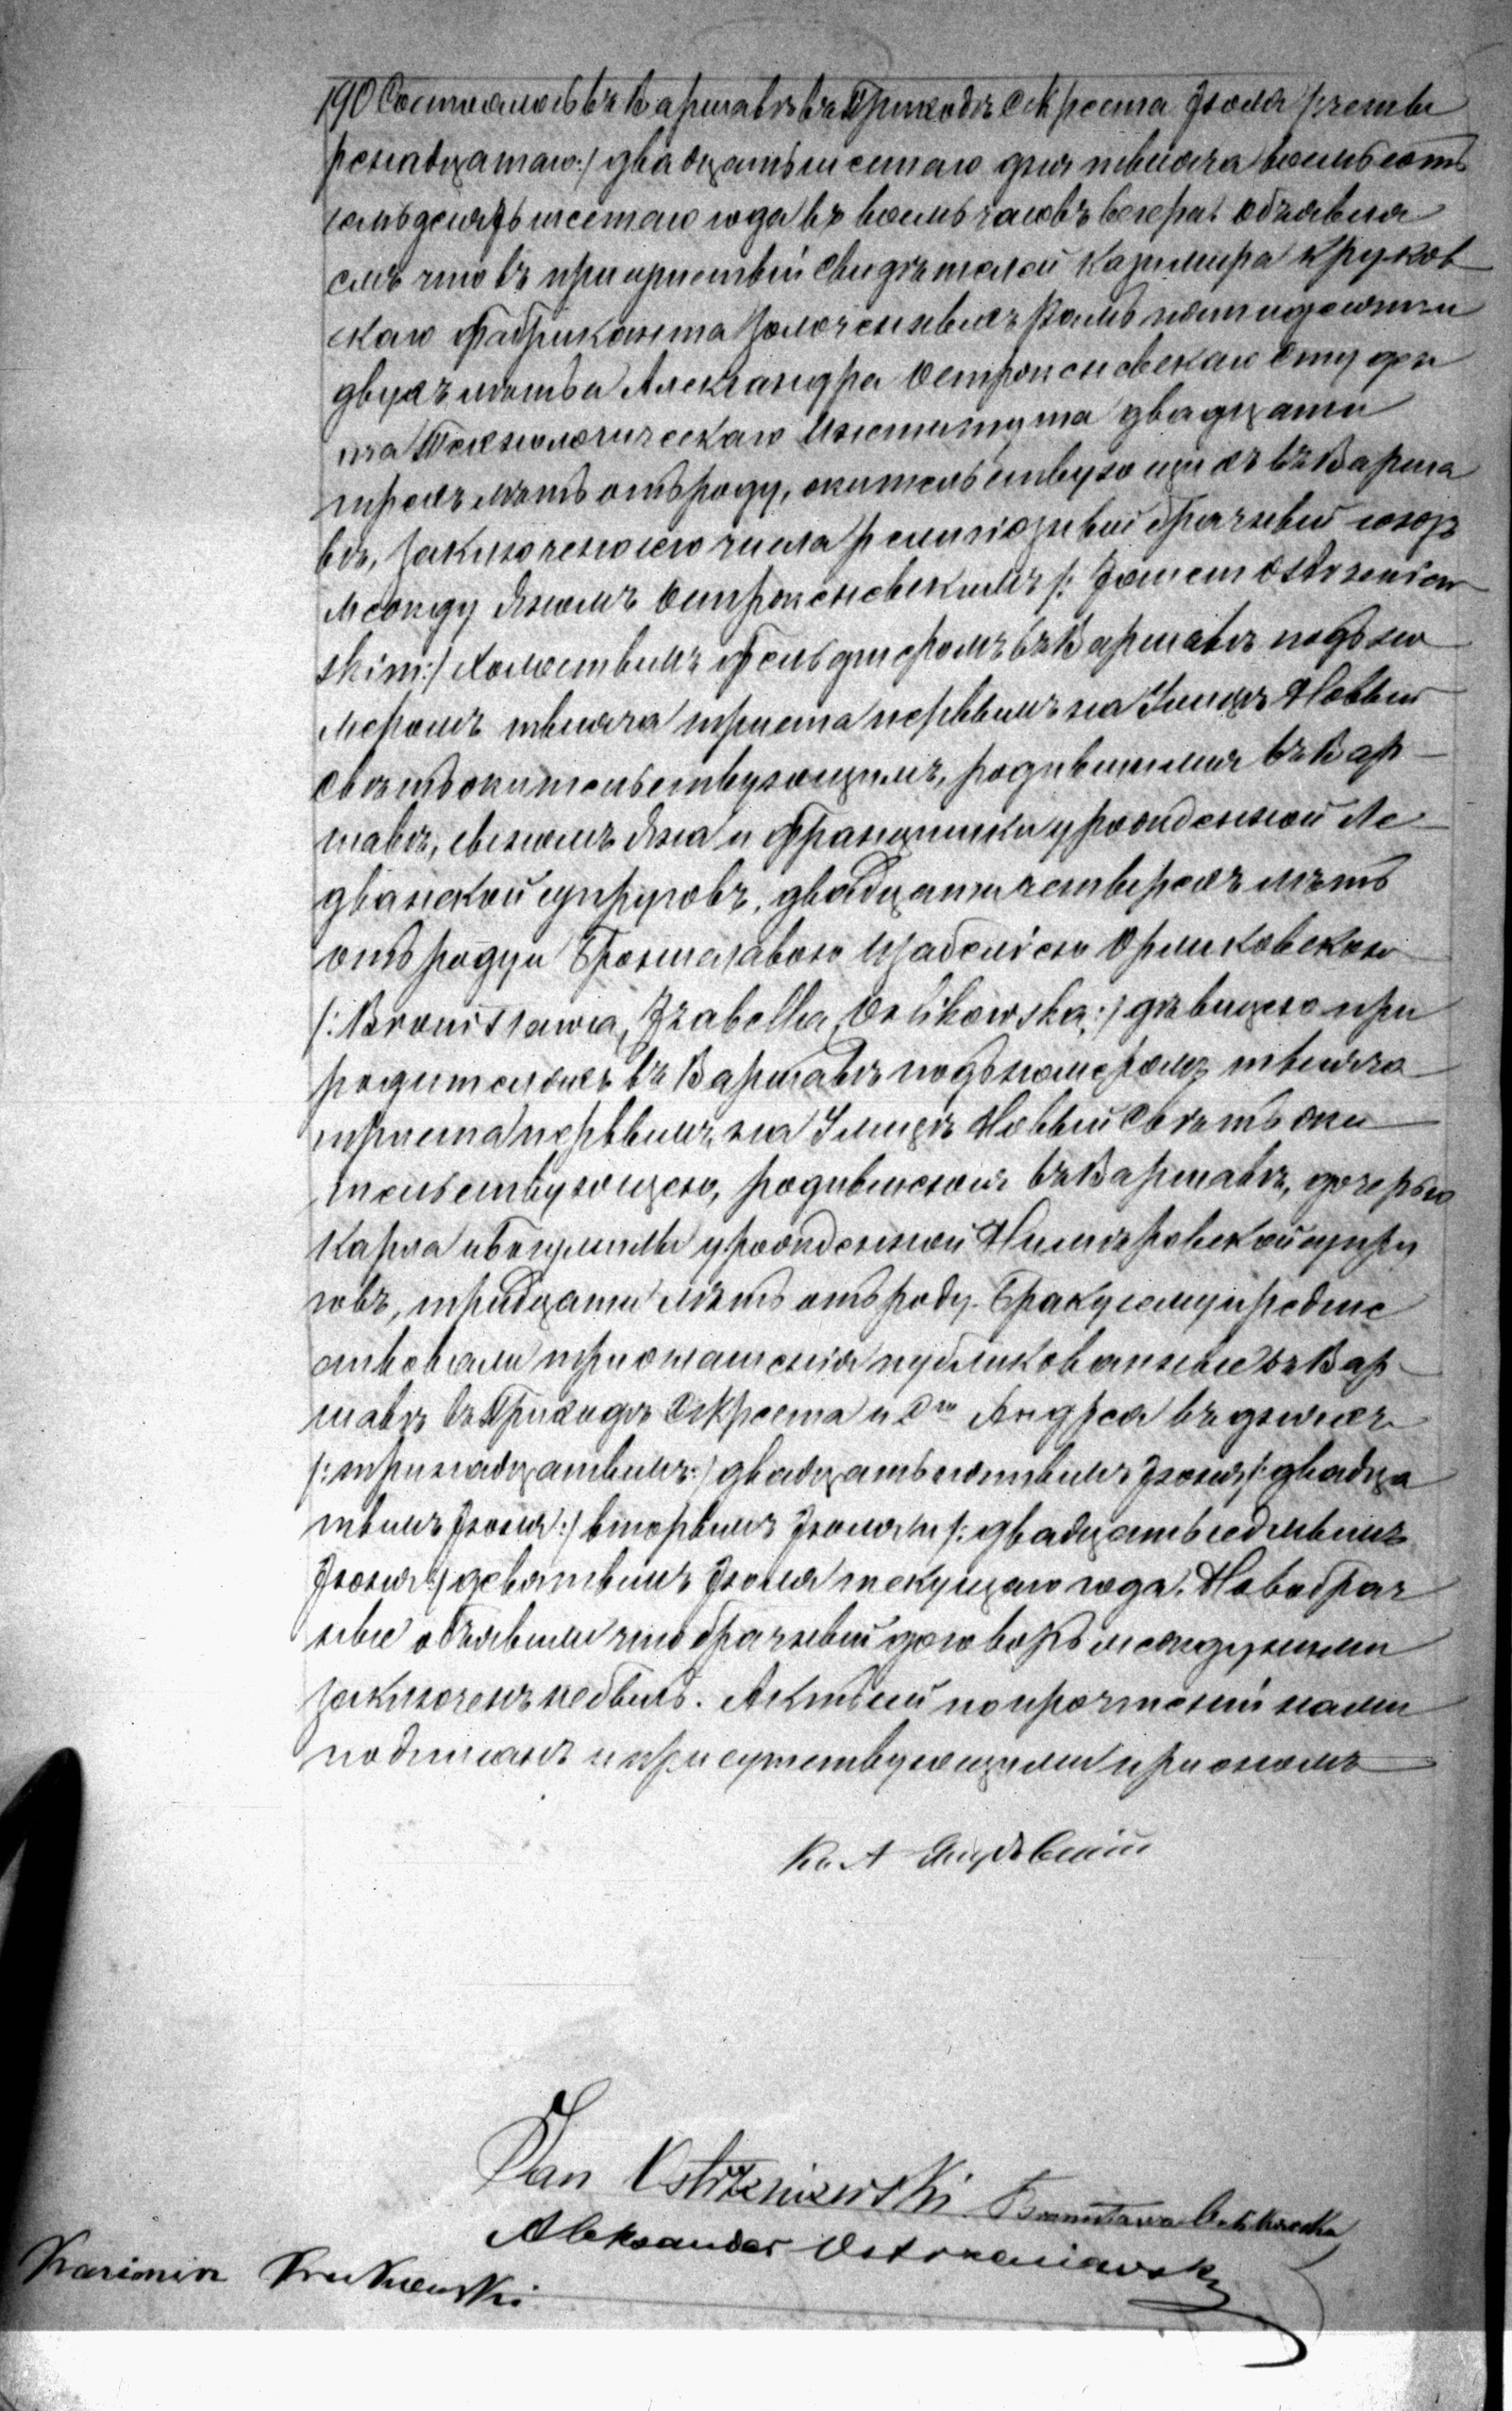 190 Состоялось въ Варшавѣ въ Приходѣ С Креста Іюля /: четы
рнадцатаго :/ двадцать шестаго дня тысяча восемьсотъ
семьдесятъ шестаго года въ восемь часовъ вечера. Объявля
емъ что въ присутствіи свидѣтелей Казимира Круков
скаго фабриканта золоченныхъ рамъ пятидесяти
двухъ лѣтъ и Александра Остроженевскаго студен
та Технологическаго Института двадцати
трехъ лѣтъ отъ роду, жительствующихъ въ Варша
вѣ, заключенъ сего числа религіозный брачный союзъ
между Яномъ Остроженевскимъ /: Janem Ostrzeniew
skim :/ холостымъ фельдшеромъ въ Варшавѣ подъ но
меромъ тысяча триста первымъ на Улицѣ Новый
Свѣтъ жительствующимъ, родившимся въ Вар-
шавѣ, сыномъ Яна и Францишки урожденной Ле-
дванской супруговъ, двадцати четырехъ лѣтъ
отъ роду и Брониславою Изабеліею Орликовскою
/: Bronisława, Izabella, Orlikowska :/ дѣвицею при
родителяхъ въ Варшавѣ подъ номеромъ тысяча
триста первымъ, на Улицѣ Новый Свѣтъ жи
тельствующею, родившеюся въ Варшавѣ, дочерью
Карла и Богумилы урожденной Нимировской супру
говъ, тридцати лѣтъ отъ роду. Браку сему предше
ствовали три оглашенія публикованные въ Вар-
шавѣ въ Приходѣ С Креста и Сго Андрея въ дняхъ
/: тринадцатымъ :/ двадцать пятымъ Іюня, /: двадца
тымъ Іюня :/ вторымъ Іюля и /: двадцать седьмымъ
Іюня :/ девятымъ Іюля текущаго года. Новобрач
ные объявили что брачный договоръ между ними
заключенъ не былъ. Актъ сей по прочтеніи нами
подписанъ и присутствующими при ономъ
Кс. А
Jan Ostrzeniewski Bronisława Orlikowska
Aleksander Ostrzeniewski
Kazimierz Krukowski